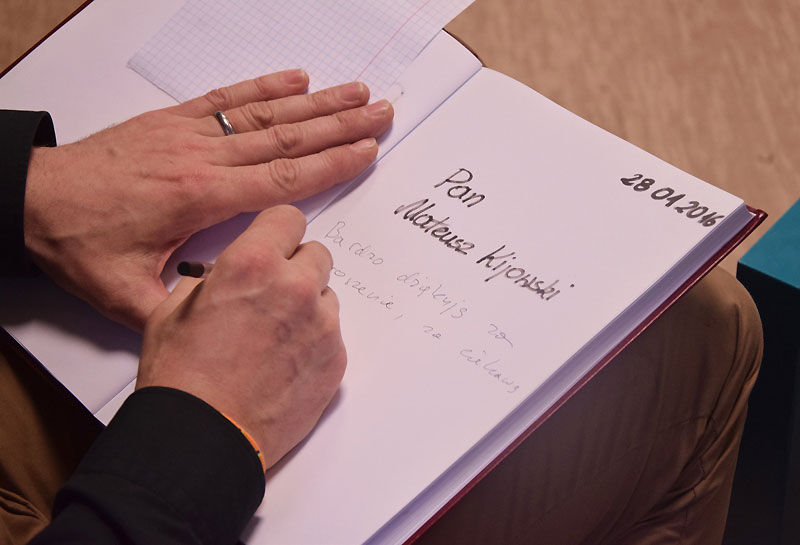 28 01 2016
Pan
Mateusz Kijowski
Bardzo dziękuję za
oszenie, za ciekawą